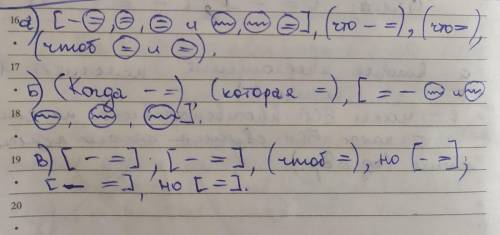 16 а) [- =, =, = и ~, ~ =], (что - =), (что =),
(чтоб = и =).
17
Б) (Когда - =) (которая =), [= - ~ и ~
18 ~, ~, ~].
19 В) [- =]; [- =], (чтоб =), но [- =];
[- =], но [=].
20